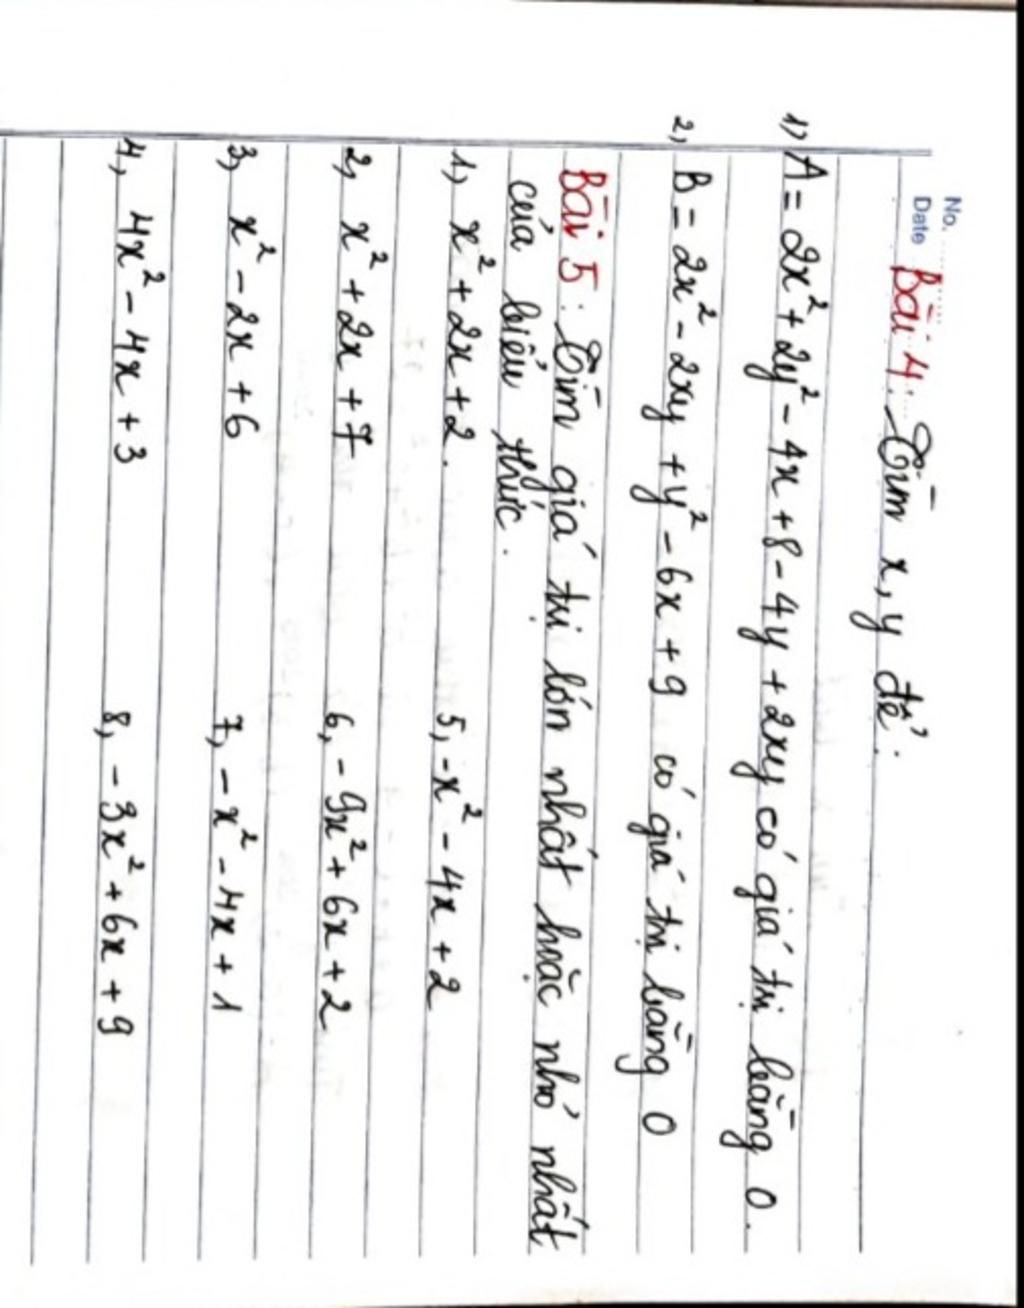 No.
Date
Bài 4: Tìm x, y để:
1, A = 2x² + 2y² - 4x + 8 - 4y + 2xy có giá trị bằng 0.
2, B = 2x² - 2xy + y² - 6x + 9 có giá trị bằng 0
Bài 5: Tìm giá trị lớn nhất hoặc nhỏ nhất
của biểu thức.
1, x² + 2x + 2. 5, -x² - 4x + 2
2, x² + 2x + 7 6, -9x² + 6x + 2
3, x² - 2x + 6 7, -x² - 4x + 1
4, 4x² - 4x + 3 8, -3x² + 6x + 9